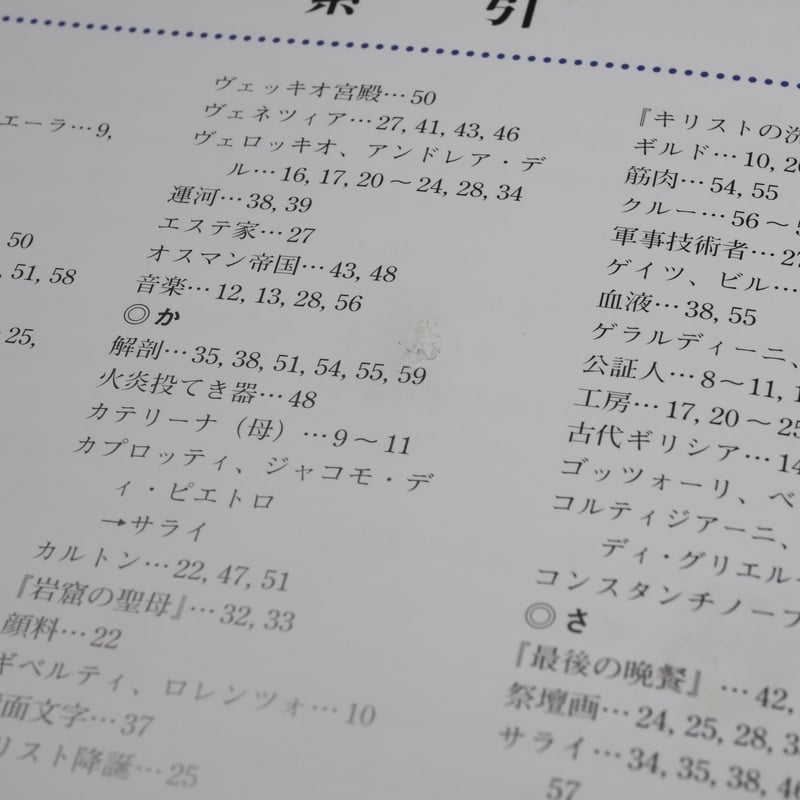 索引
エーラ…9,
50
51, 58
25,
ヴェッキオ宮殿…50
ヴェネツィア…27, 41, 43, 46
ヴェロッキオ、アンドレア・デ
ル…16, 17, 20～24, 28, 34
運河…38, 39
エステ家…27
オスマン帝国…43, 48
音楽…12, 13, 28, 56
◎か
解剖…35, 38, 51, 54, 55, 59
火炎投てき器…48
カテリーナ（母）…9～11
カプロッティ、ジャコモ・デ
ィ・ピエトロ
→サライ
カルトン…22, 47, 51
『岩窟の聖母』…32, 33
顔料…22
ギベルティ、ロレンツォ…10
面文字…37
リスト降誕…25
『キリストの洗
ギルド…10, 20
筋肉…54, 55
クルー…56～
軍事技術者…27
ゲイツ、ビル…
血液…38, 55
ゲラルディーニ、
公証人…8～11,
工房…17, 20～25
古代ギリシア…14
ゴッツォーリ、ベ
コルティジアーニ、
ディ・グリエル
コンスタンチノープ
◎さ
『最後の晩餐』…42,
祭壇画…24, 25, 28,
サライ…34, 35, 38,
57